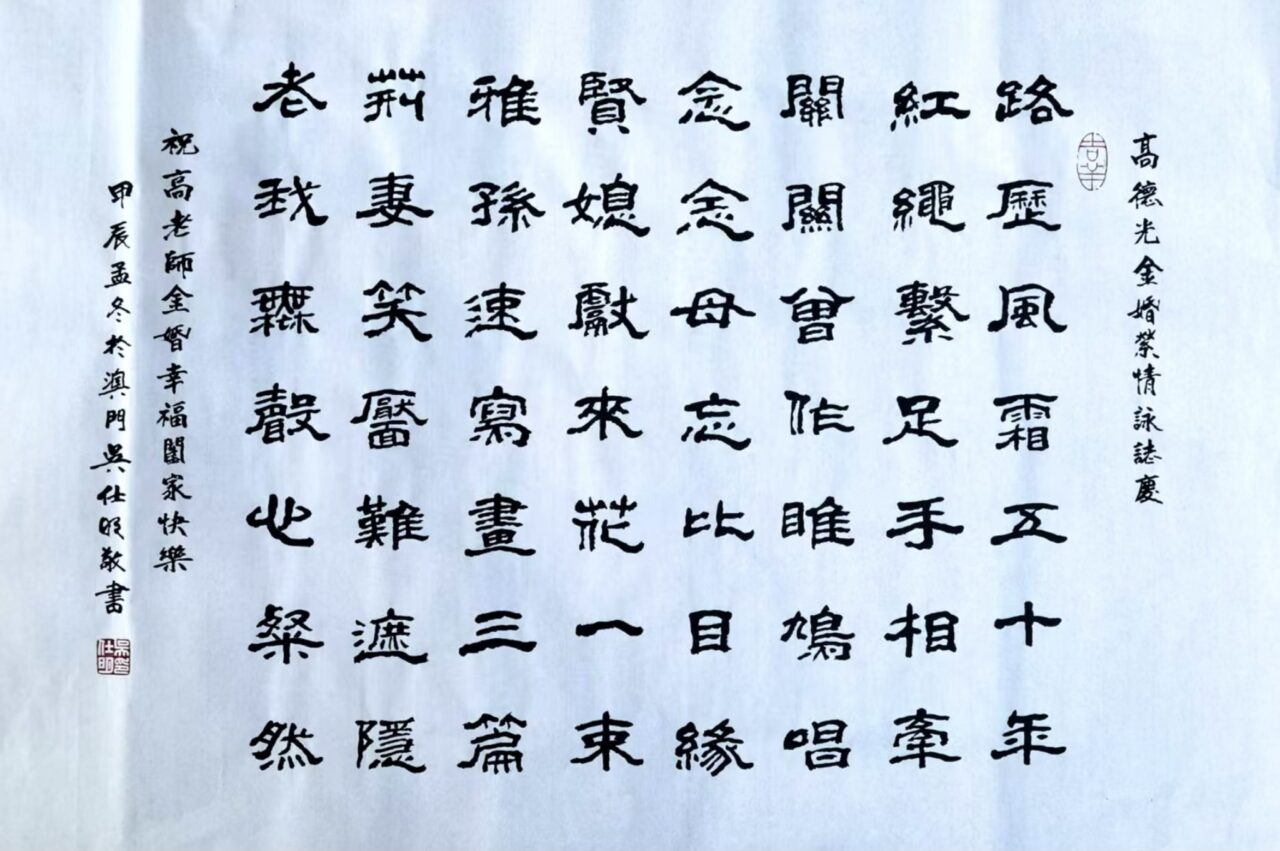 高德光金婚縈情詠誌慶
路歷風霜五十年
紅繩繫足手相牽
關關曾作雎鳩唱
念念毋忘比目緣
賢媳獻來花一束
雅孫速寫畫三篇
荊妻笑靨難遮隱
老我無聲心粲然
祝高老師金婚幸福闔家快樂
甲辰孟冬於澳門吳仕明敬書